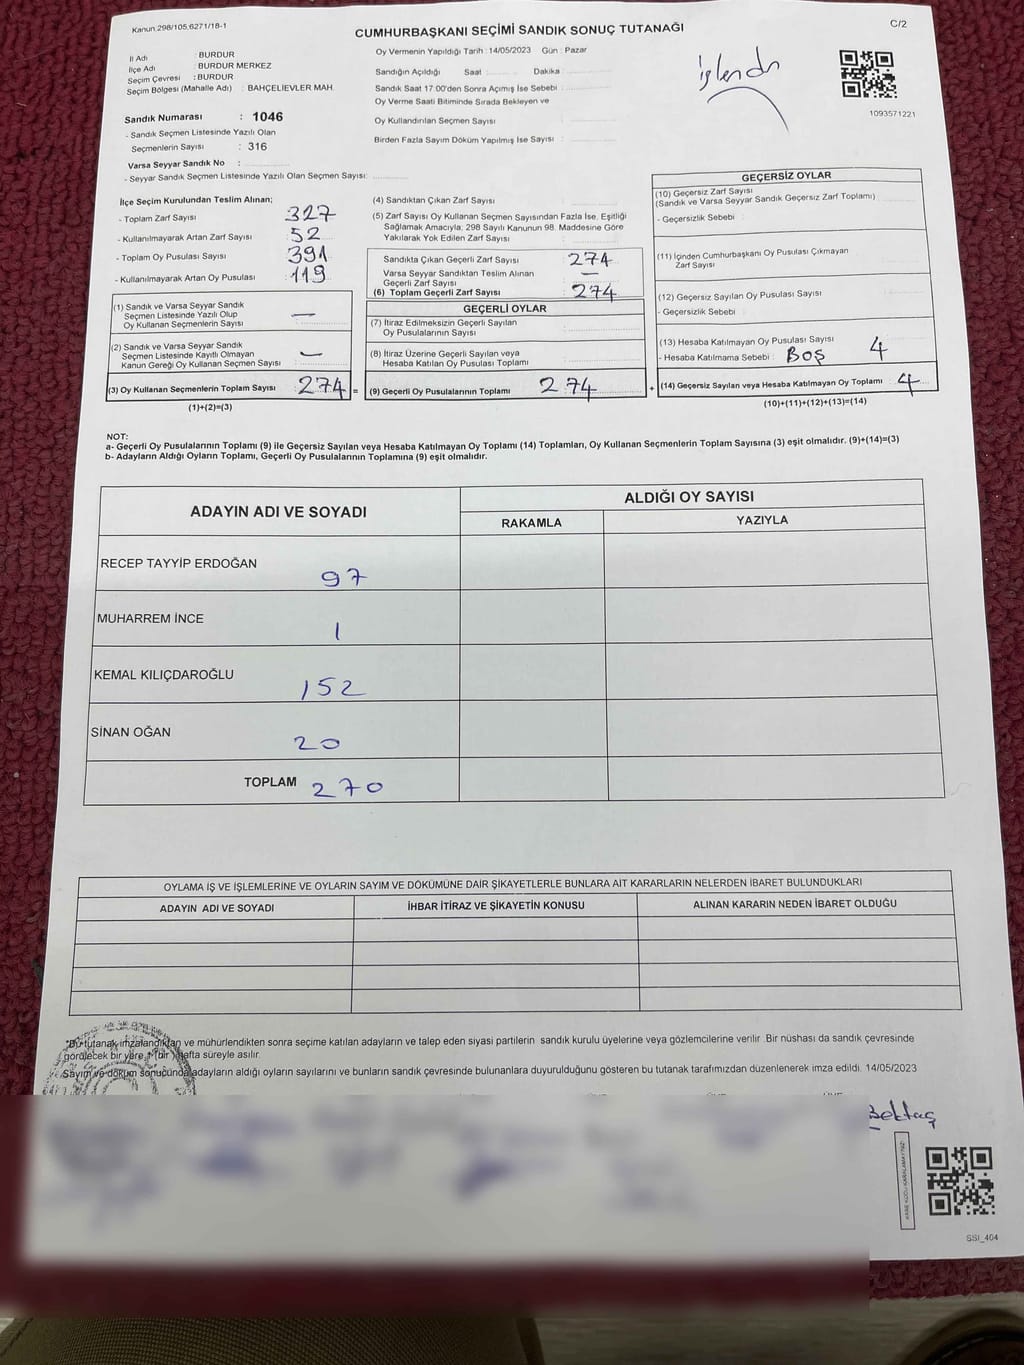 Kanun.298/105.6271/18-1
CUMHURBAŞKANI SEÇİMİ SANDIK SONUÇ TUTANAĞI
C/2
İl Adı : BURDUR
İlçe Adı : BURDUR MERKEZ
Seçim Çevresi : BURDUR
Seçim Bölgesi (Mahalle Adı) : BAHÇELİEVLER MAH.
Sandık Numarası : 1046
- Sandık Seçmen Listesinde Yazılı Olan
Seçmenlerin Sayısı : 316
Varsa Seyyar Sandık No :
- Seyyar Sandık Seçmen Listesinde Yazılı Olan Seçmen Sayısı:
Oy Vermenin Yapıldığı Tarih : 14/05/2023 Gün : Pazar
Sandığın Açıldığı Saat : Dakika :
Sandık Saat 17:00'den Sonra Açımış İse Sebebi :
Oy Verme Saati Bitiminde Sırada Bekleyen ve
Oy Kullandırılan Seçmen Sayısı :
Birden Fazla Sayım Döküm Yapılmış İse Sayısı :
işlendi
1093571221
İlçe Seçim Kurulundan Teslim Alınan;
- Toplam Zarf Sayısı : 327
- Kullanılmayarak Artan Zarf Sayısı : 52
- Toplam Oy Pusulası Sayısı : 391
- Kullanılmayarak Artan Oy Pusulası : 119
(1) Sandık ve Varsa Seyyar Sandık
Seçmen Listesinde Yazılı Olup
Oy Kullanan Seçmenlerin Sayısı : —
(2) Sandık ve Varsa Seyyar Sandık
Seçmen Listesinde Kayıtlı Olmayan
Kanun Gereği Oy Kullanan Seçmen Sayısı : —
(3) Oy Kullanan Seçmenlerin Toplam Sayısı : 274 =
(1)+(2)=(3)
(4) Sandıktan Çıkan Zarf Sayısı :
(5) Zarf Sayısı Oy Kullanan Seçmen Sayısından Fazla İse, Eşitliği
Sağlamak Amacıyla; 298 Sayılı Kanunun 98. Maddesine Göre
Yakılarak Yok Edilen Zarf Sayısı :
Sandıkta Çıkan Geçerli Zarf Sayısı : 274
Varsa Seyyar Sandıktan Teslim Alınan
Geçerli Zarf Sayısı : —
(6) Toplam Geçerli Zarf Sayısı : 274
GEÇERLİ OYLAR
(7) İtiraz Edilmeksizin Geçerli Sayılan
Oy Pusulalarının Sayısı :
(8) İtiraz Üzerine Geçerli Sayılan veya
Hesaba Katılan Oy Pusulası Toplamı :
(9) Geçerli Oy Pusulalarının Toplamı : 274 +
GEÇERSİZ OYLAR
(10) Geçersiz Zarf Sayısı
(Sandık ve Varsa Seyyar Sandık Geçersiz Zarf Toplamı) :
- Geçersizlik Sebebi :
(11) İçinden Cumhurbaşkanı Oy Pusulası Çıkmayan
Zarf Sayısı :
(12) Geçersiz Sayılan Oy Pusulası Sayısı :
- Geçersizlik Sebebi :
(13) Hesaba Katılmayan Oy Pusulası Sayısı : 4
- Hesaba Katılmama Sebebi : Boş
(14) Geçersiz Sayılan veya Hesaba Katılmayan Oy Toplamı : 4
(10)+(11)+(12)+(13)=(14)
NOT:
a- Geçerli Oy Pusulalarının Toplamı (9) ile Geçersiz Sayılan veya Hesaba Katılmayan Oy Toplamı (14) Toplamları, Oy Kullanan Seçmenlerin Toplam Sayısına (3) eşit olmalıdır. (9)+(14)=(3)
b- Adayların Aldığı Oyların Toplamı, Geçerli Oy Pusulalarının Toplamına (9) eşit olmalıdır.
ADAYIN ADI VE SOYADI
ALDIĞI OY SAYISI
RAKAMLA YAZIYLA
RECEP TAYYİP ERDOĞAN 97
MUHARREM İNCE 1
KEMAL KILIÇDAROĞLU 152
SİNAN OĞAN 20
TOPLAM 270
OYLAMA İŞ VE İŞLEMLERİNE VE OYLARIN SAYIM VE DÖKÜMÜNE DAİR ŞİKAYETLERLE BUNLARA AİT KARARLARIN NELERDEN İBARET BULUNDUKLARI
ADAYIN ADI VE SOYADI İHBAR İTİRAZ VE ŞİKAYETİN KONUSU ALINAN KARARIN NEDEN İBARET OLDUĞU
*Bu tutanak imzalandıktan ve mühürlendikten sonra seçime katılan adayların ve talep eden siyasi partilerin sandık kurulu üyelerine veya gözlemcilerine verilir. Bir nüshası da sandık çevresinde
görülecek bir yere 1 (bir) hafta süreyle asılır.
Sayım ve döküm sonucunda adayların aldığı oyların sayılarını ve bunların sandık çevresinde bulunanlara duyurulduğunu gösteren bu tutanak tarafımızdan düzenlenerek imza edildi. 14/05/2023
Bektaş
SSI_404